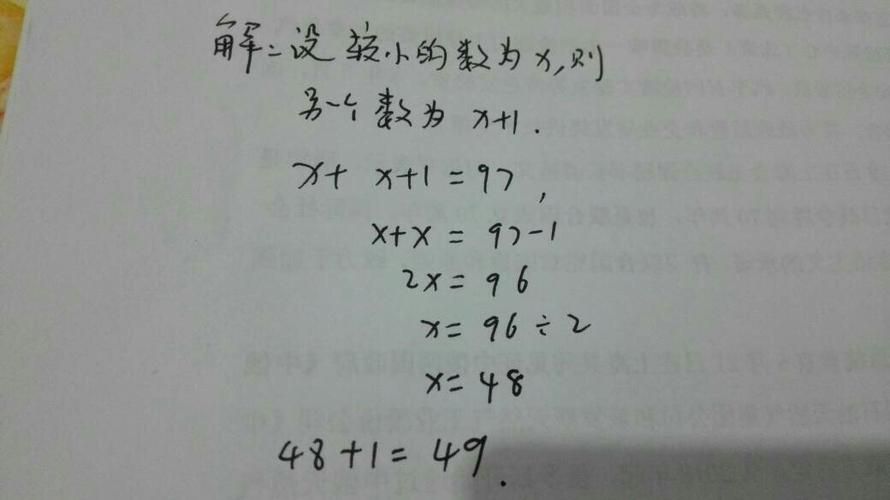 解:设较小的数为x,则
另一个数为 x+1.
x+ x+1=97,
x+x=97-1
2x=96
x=96÷2
x=48
48+1=49.